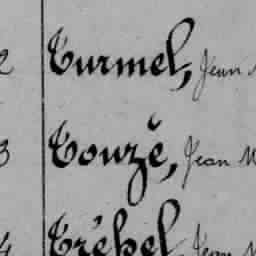 2 Turmel, Jean M
3 Touzé, Jean M
4 Trébel, Jean M